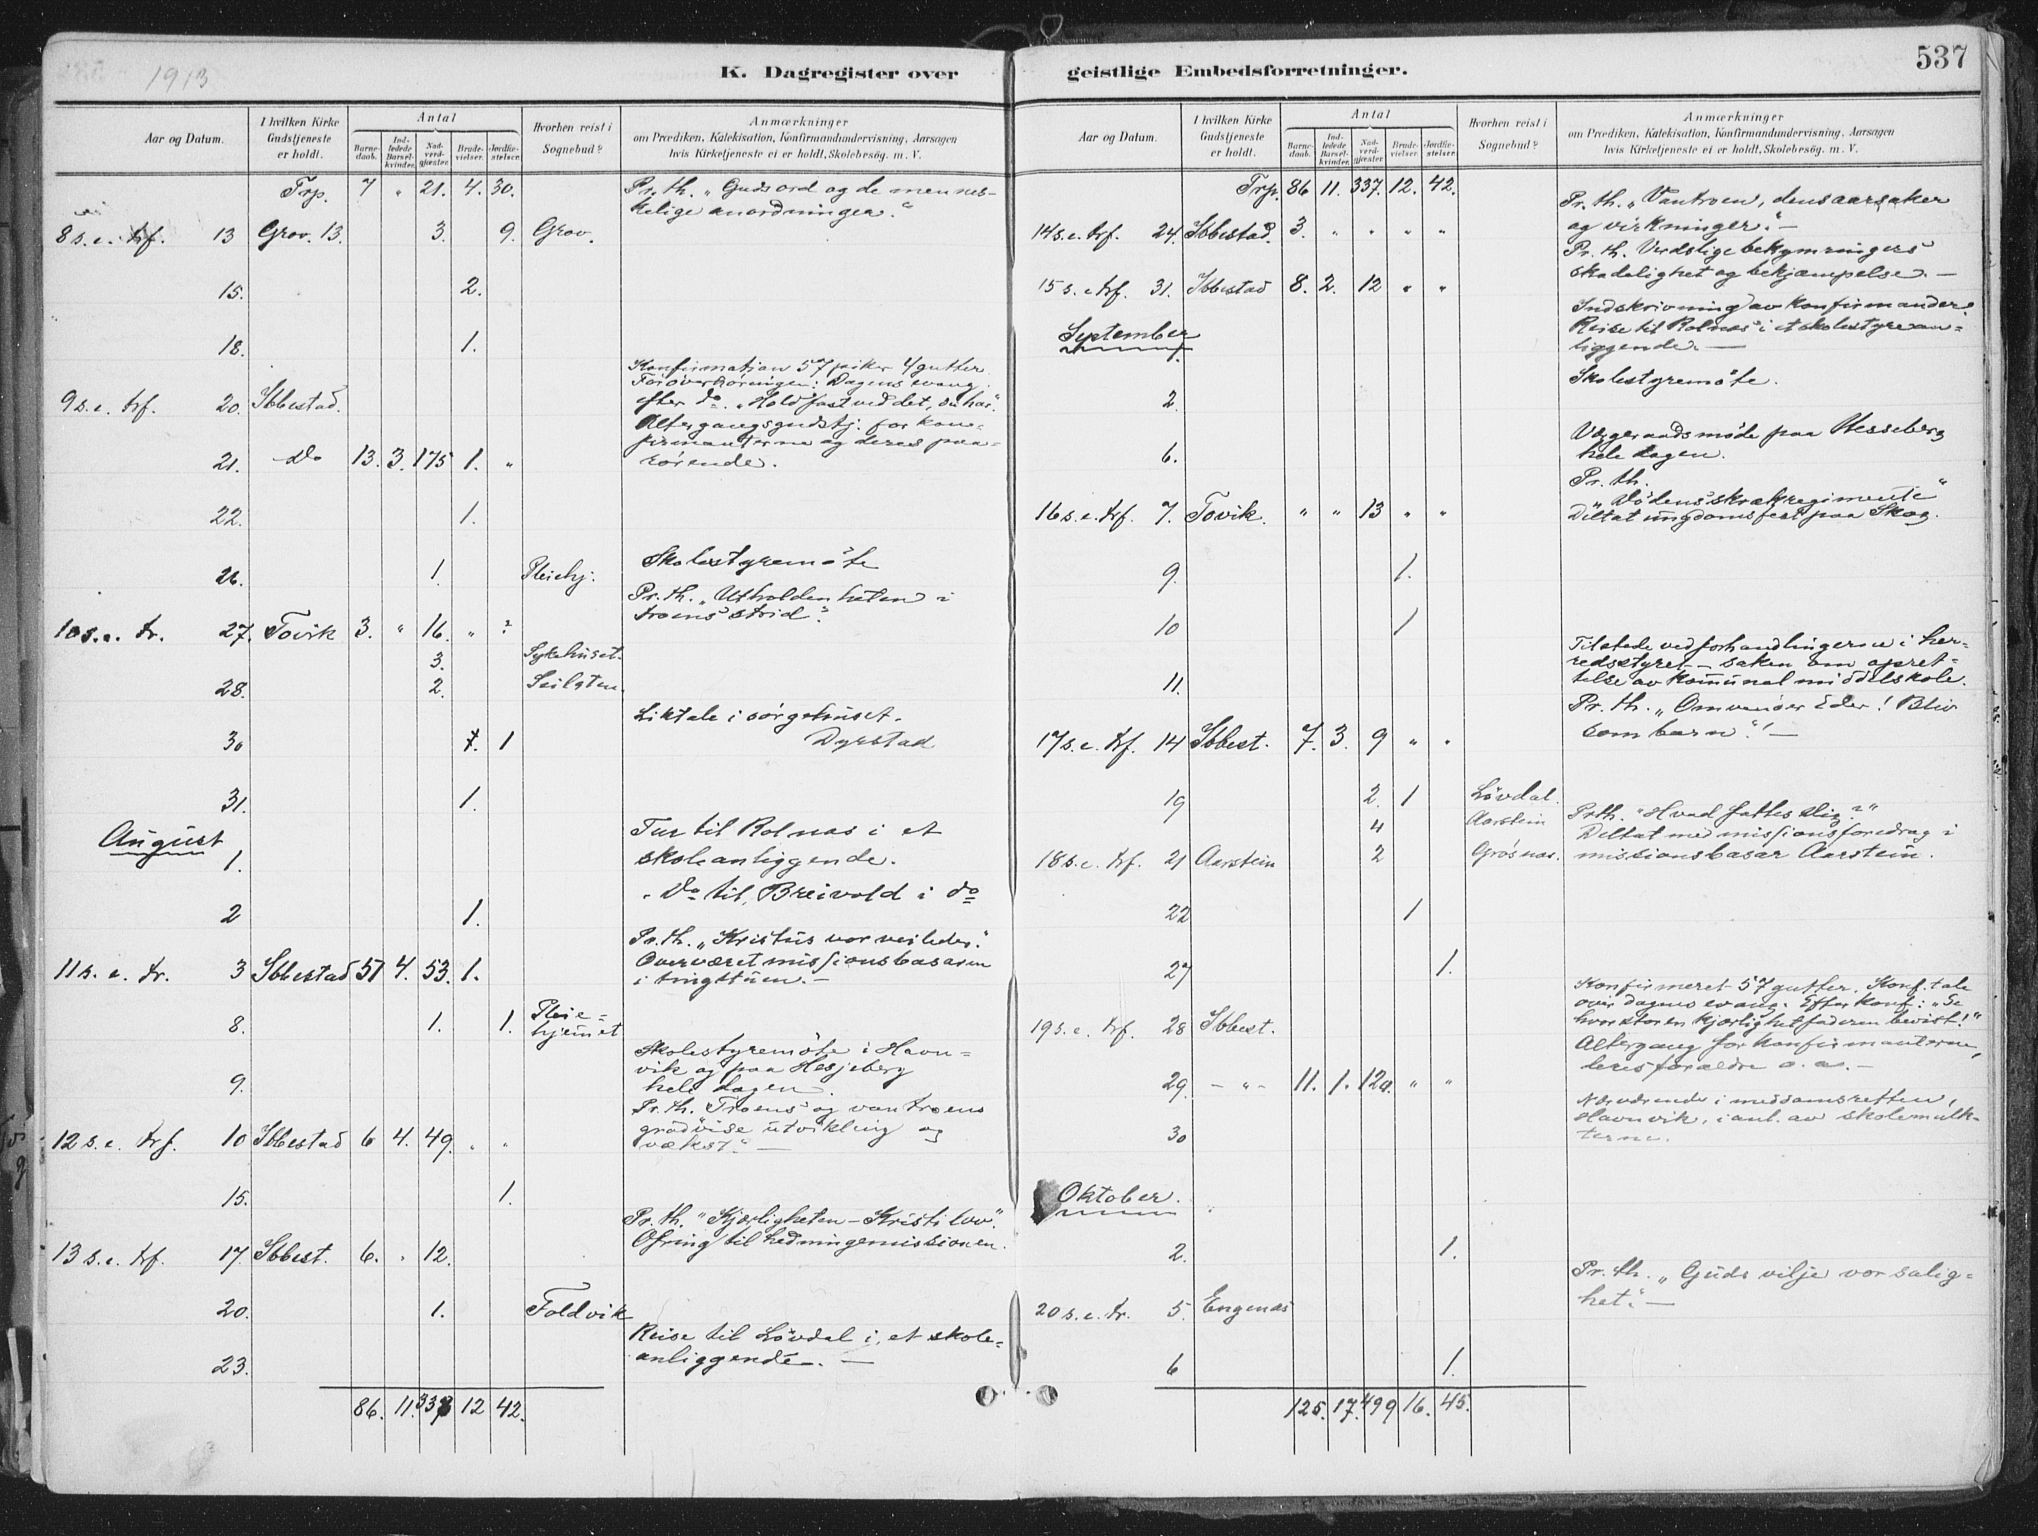 1913
K. Dagregister over
Aar og Datum.
I hvilken Kirke Gudstjeneste er holdt.
Antal
Barnedaab.
Indledede Barselkvinder.
Nadverdgjæster.
Brudevielser.
Jordfæstelser.
Hvorhen reist i Sognebud?
Anmærkninger
om Prædiken, Katekisation, Konfirmandundervisning, Aarsagen
hvis Kirketjeneste ei er holdt, Skolebesøg. m. V.
Trp. 7 " 21. 4. 30. Pr. th. "Guds ord og de mennes-
kelige anordninger."
8 s. e. trf. 13 Grov. 13. 3. 9. Grov.
15. 2.
18. 1.
Konfirmation 57 piker 4 gutter
Før overhøringen: Dagens evang.
9 s. e. trf. 20. Ibbestad. efter do. "Hold fast ved det, du har".
Altergangsgudstj. for kon-
firmanterne og deres paa-
21. -do 13. 3. 175 1. " rørende.
22. 1.
26. 1. Pleiehj. Skolestyremöte
Pr. th. "Utholdenheten i
troens strid".
10 s. e. tr. 27. Tovik 3. " 16. " 2
3. Sykehuset.
28. 2.
Liktale i sørgehuset.
30 7. 1 Dyrstad
31. 1.
August
Tur til Rolnæs i et
1. skoleanliggende.
2 1. Do til Breivold i do
Pr. th. "Kristus vor veileder."
11 s. e. tr. 3 Ibbestad 51 4. 53. 1. Overværet missionsbasaren
i tingstuen. -
8. 1. 1. Pleie-
hjemet
Skolestyremöte i Havn-
vik og paa Hesjeberg
9. hele dagen.
Pr. th. Troens og vantroens
12 s. e. trf. 10 Ibbestad 6 4. 49. " " gradvise utvikling og
vækst." -
15. 1.
Pr. th. "Kjærligheten - Kristi lov".
13 s. e. trf. 17. Ibbest. 6. " 12. Ofring til hedningemissionen.
20. 1. Foldvik
Reise til Lövdal i et skole-
23. anliggende. -
86. 11. 337 12 42.
geistlige Embedsforretninger.
537
Aar og Datum.
I hvilken Kirke Gudstjeneste er holdt.
Antal
Barnedaab.
Indledede Barselkvinder.
Nadverdgjæster.
Brudevielser.
Jordfæstelser.
Hvorhen reist i Sognebud?
Anmærkninger
om Prædiken, Katekisation, Konfirmandundervisning, Aarsagen
hvis Kirketjeneste ei er holdt, Skolebesøg. m. V.
Trp. 86 11. 337. 12. 42. Pr. th. "Vantroen, dens aarsaker
14 s. e. trf. 24. Ibbestad. 3. " " " " og virkninger". -
Pr. th. Verdslige bekymringers
skadelighet og bekjæmpelse. -
15 s. e. trf. 31. Ibbestad 8. 2. 12 " "
Indskrivning av konfirmander.
September Reise til Rolnæs i et skolestyrean-
1. liggende. -
2. Skolestyremöte.
Vergeraadsmöde paa Hesseberg
6. hele dagen.
Pr. th.
16 s. e. trf. 7. Tovik. " " 13 " " "Dödens skrækregimente"
Deltat ungdomsfest paa Skog.
9. 1.
10 1
Tilstede ved forhandlingerne i her-
redsstyret - saken om opret-
11. telse av kommunal middelskole.
Pr. th. "Omvender Eder! Bliv
17 s. e. trf. 14 Ibbest. 7. 3. 9 " " som barn"! -
19 2. 1 Lövdal.
4 Aarstein Pr. th. "Hvad fattes dig?"
Deltat med missionsforedrag i
18 s. e. trf. 21 Aarstein 2 Grösnæs. missionsbasar Aarstein.
22 1
27 1.
Konfirmeret 57 gutter. Konf. tale
over dagens evang. Efter konf: "Se
19 s. e. trf. 28 Ibbest. hvor stor en kjærlighet faderen bevist!"
Altergang for konfirmanterne,
29. - " - 11. 1. 129. " " deres foraldre o. a. -
Nærværende i meddomsretten,
30 Havnvik, i anl. av skolemulk-
terne.
Oktober.
2. 1.
Pr. th. "Guds vilje vor salig-
20 s. e. tr. 5. Engenæs het." -
6 1.
125. 17. 499 16. 45.